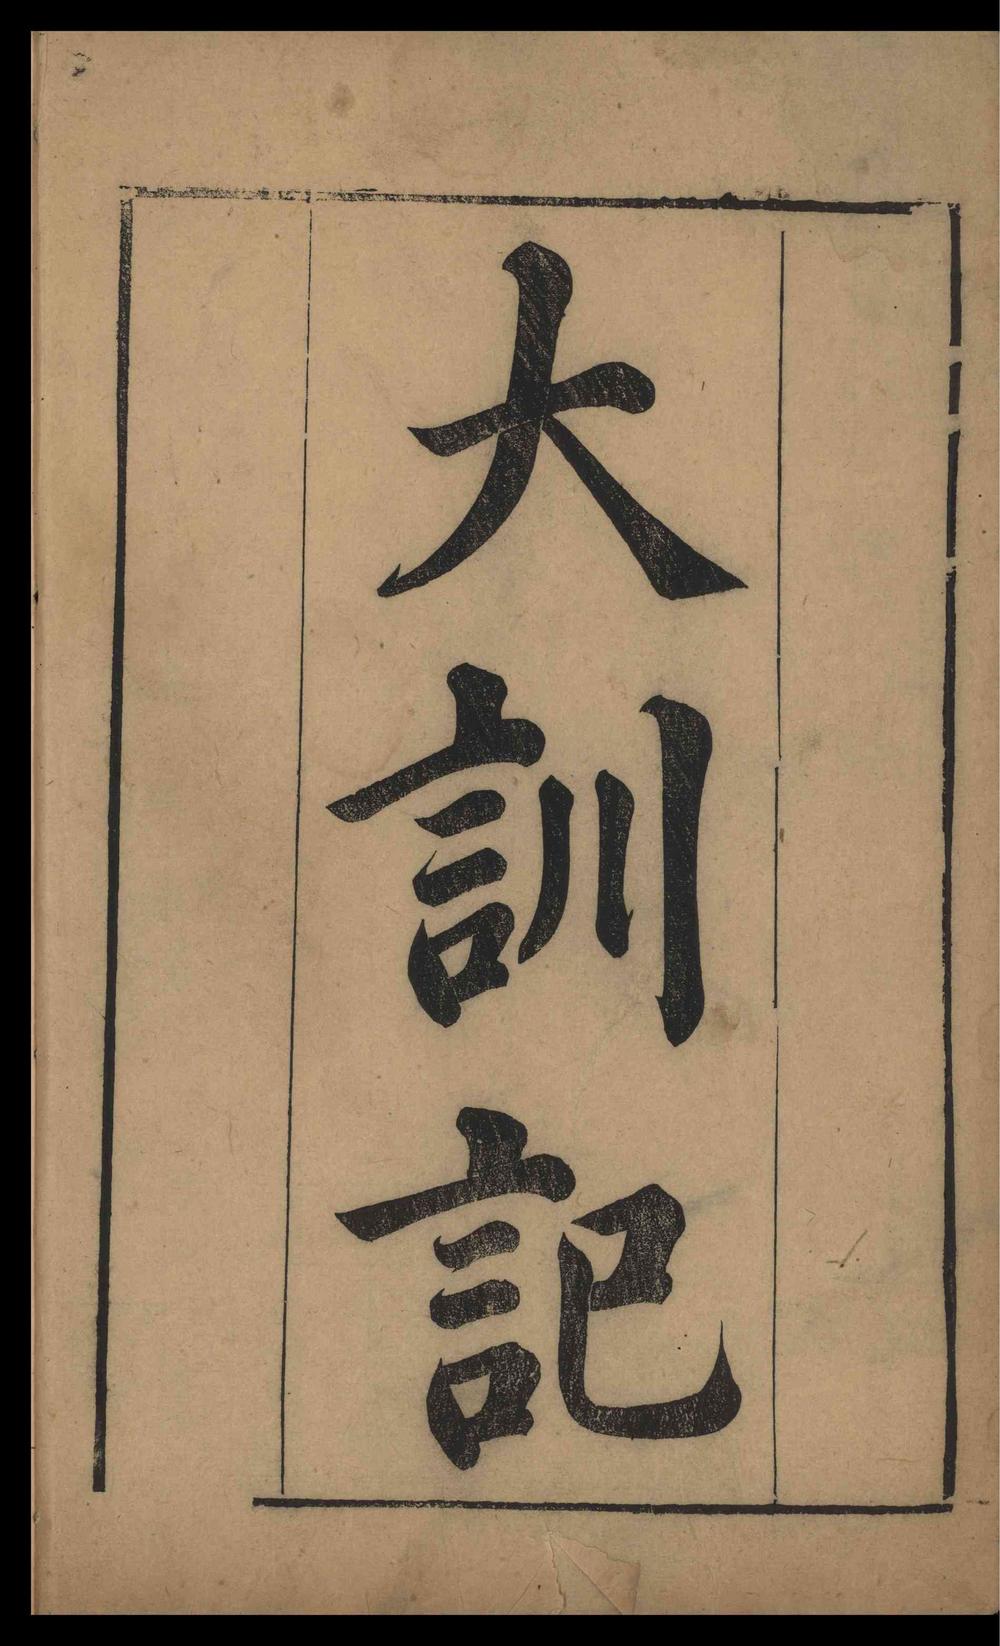 大訓記